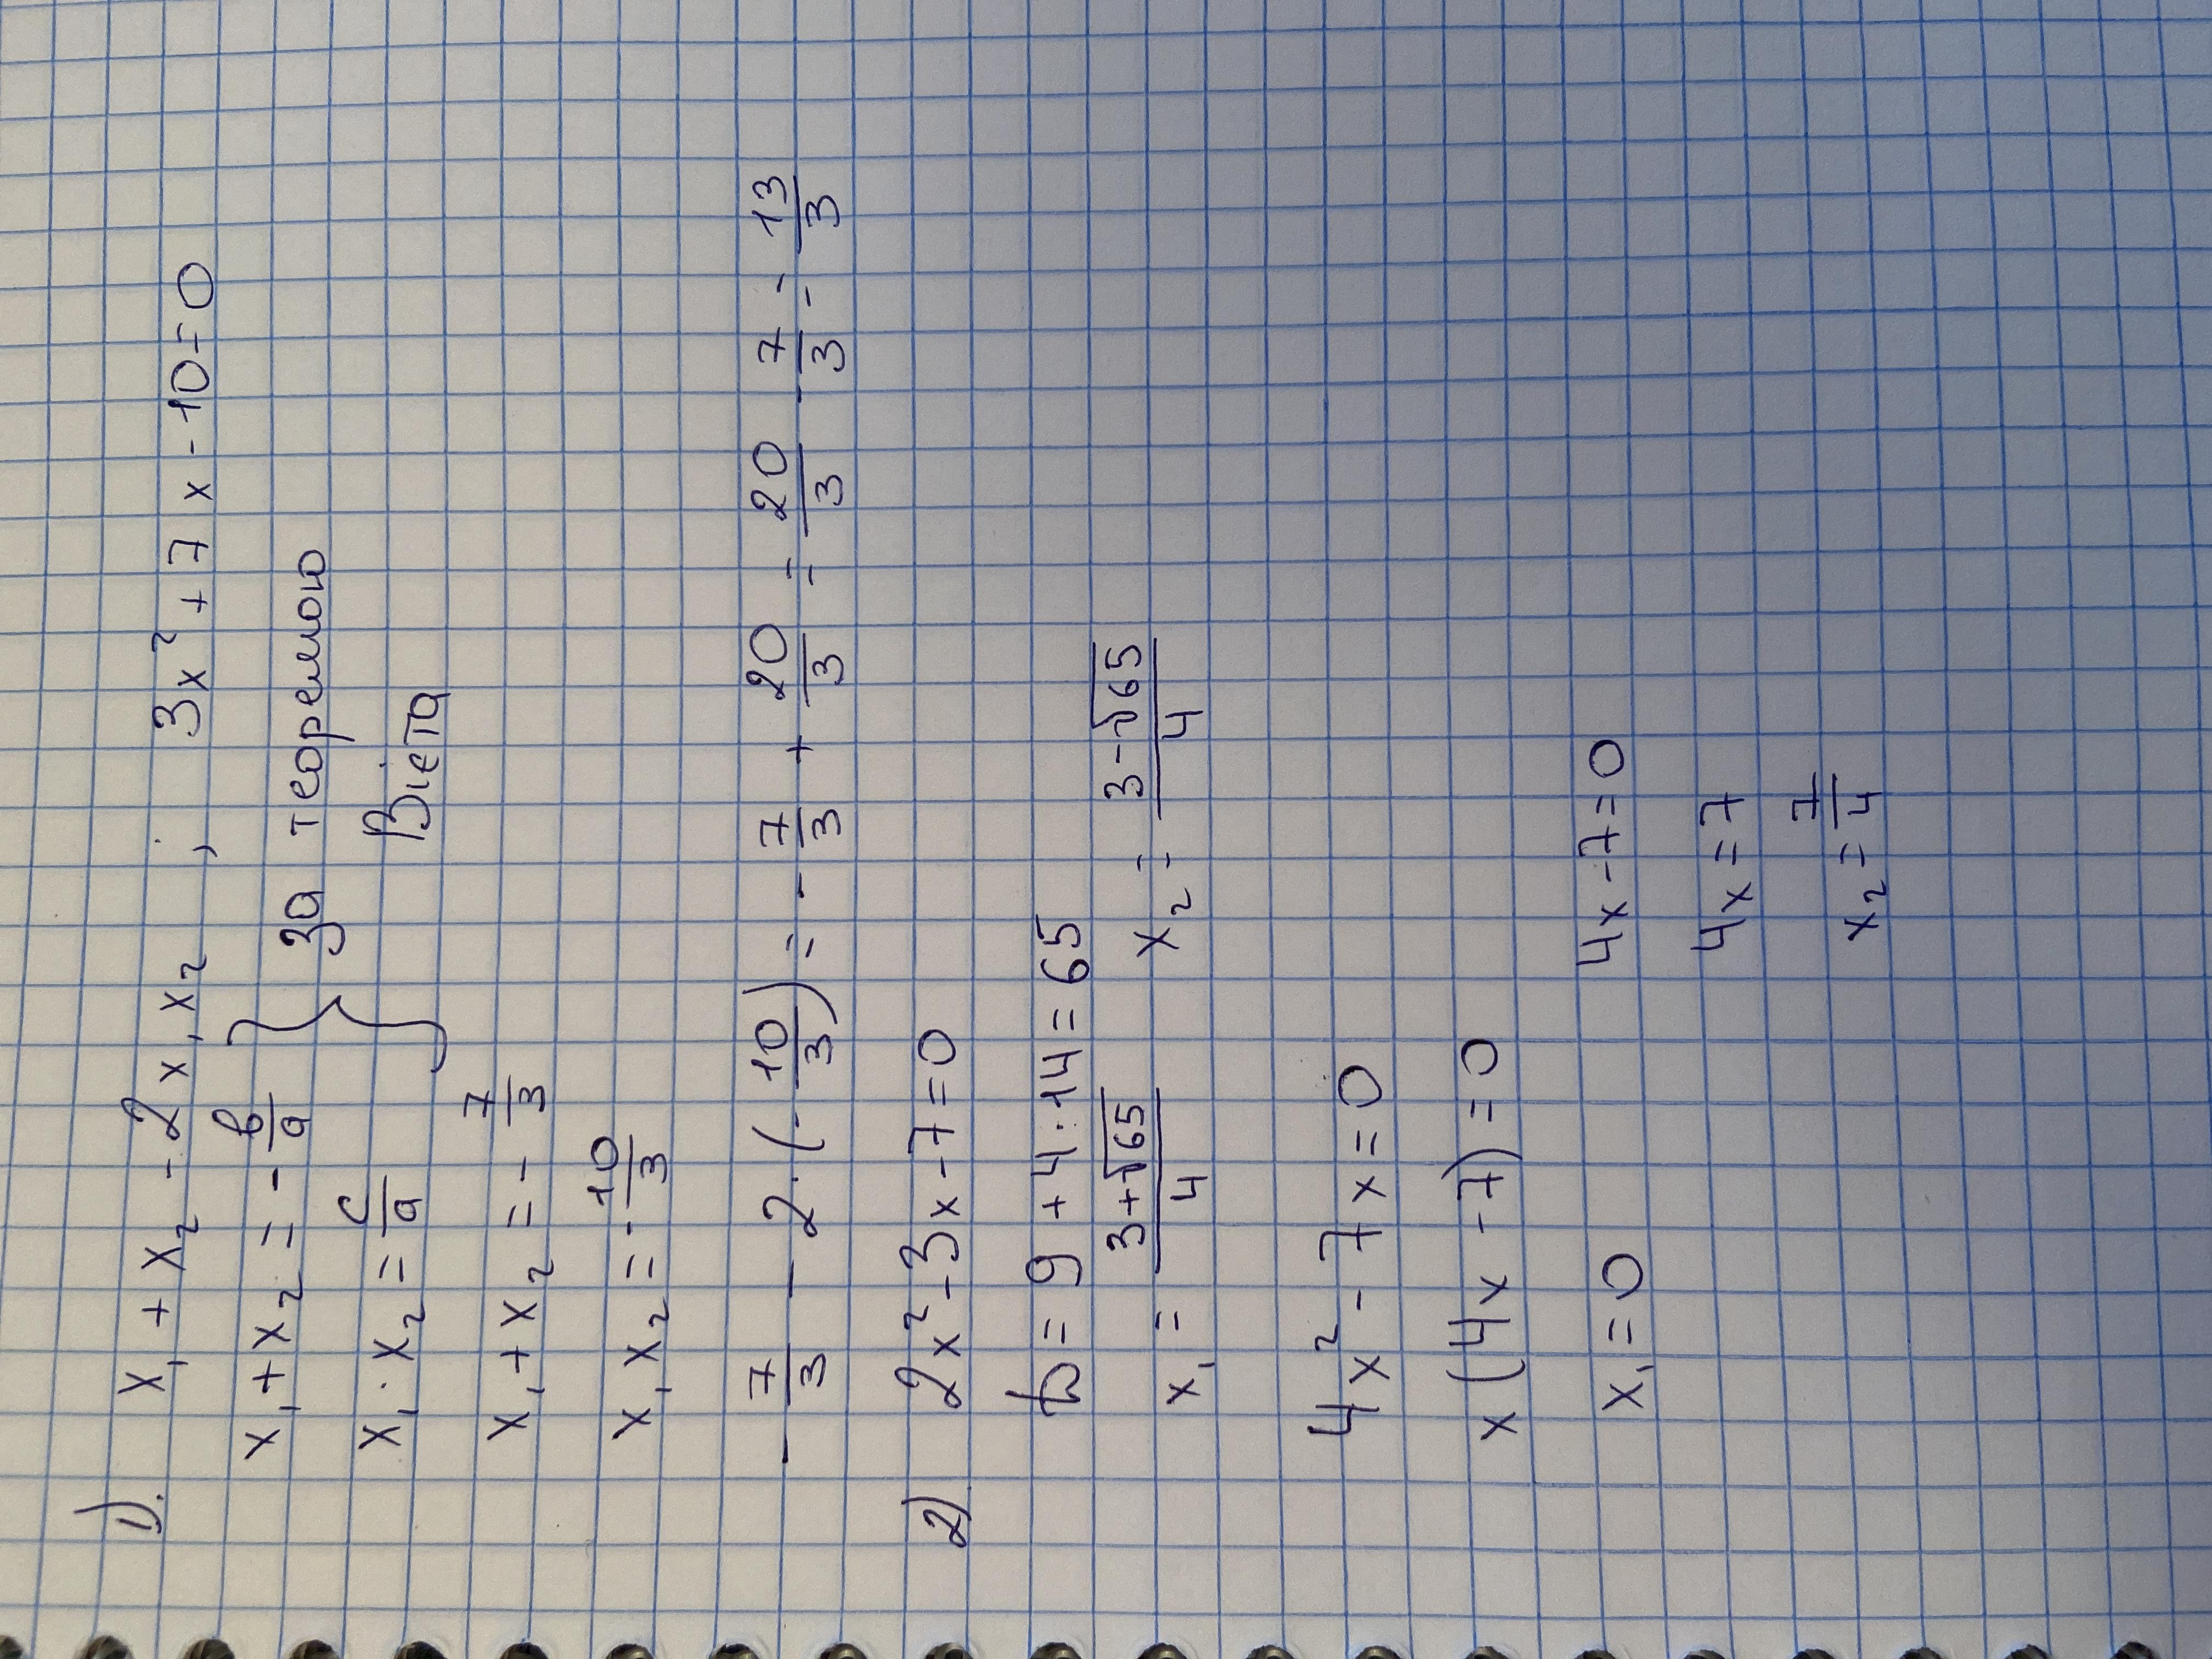 1). x₁ + x₂ - 2x₁x₂ ; 3x² + 7x - 10 = 0
x₁ + x₂ = - b/a } За теоремою
x₁ · x₂ = c/a Вієта
x₁ + x₂ = - 7/3
x₁x₂ = - 10/3
- 7/3 - 2 · (- 10/3) = - 7/3 + 20/3 = 20/3 - 7/3 = 13/3
2) 2x² - 3x - 7 = 0
D = 9 + 4 · 14 = 65
x₁ = (3 + √65)/4 x₂ = (3 - √65)/4
4x² - 7x = 0
x (4x - 7) = 0
x₁ = 0 4x - 7 = 0
4x = 7
x₂ = 7/4